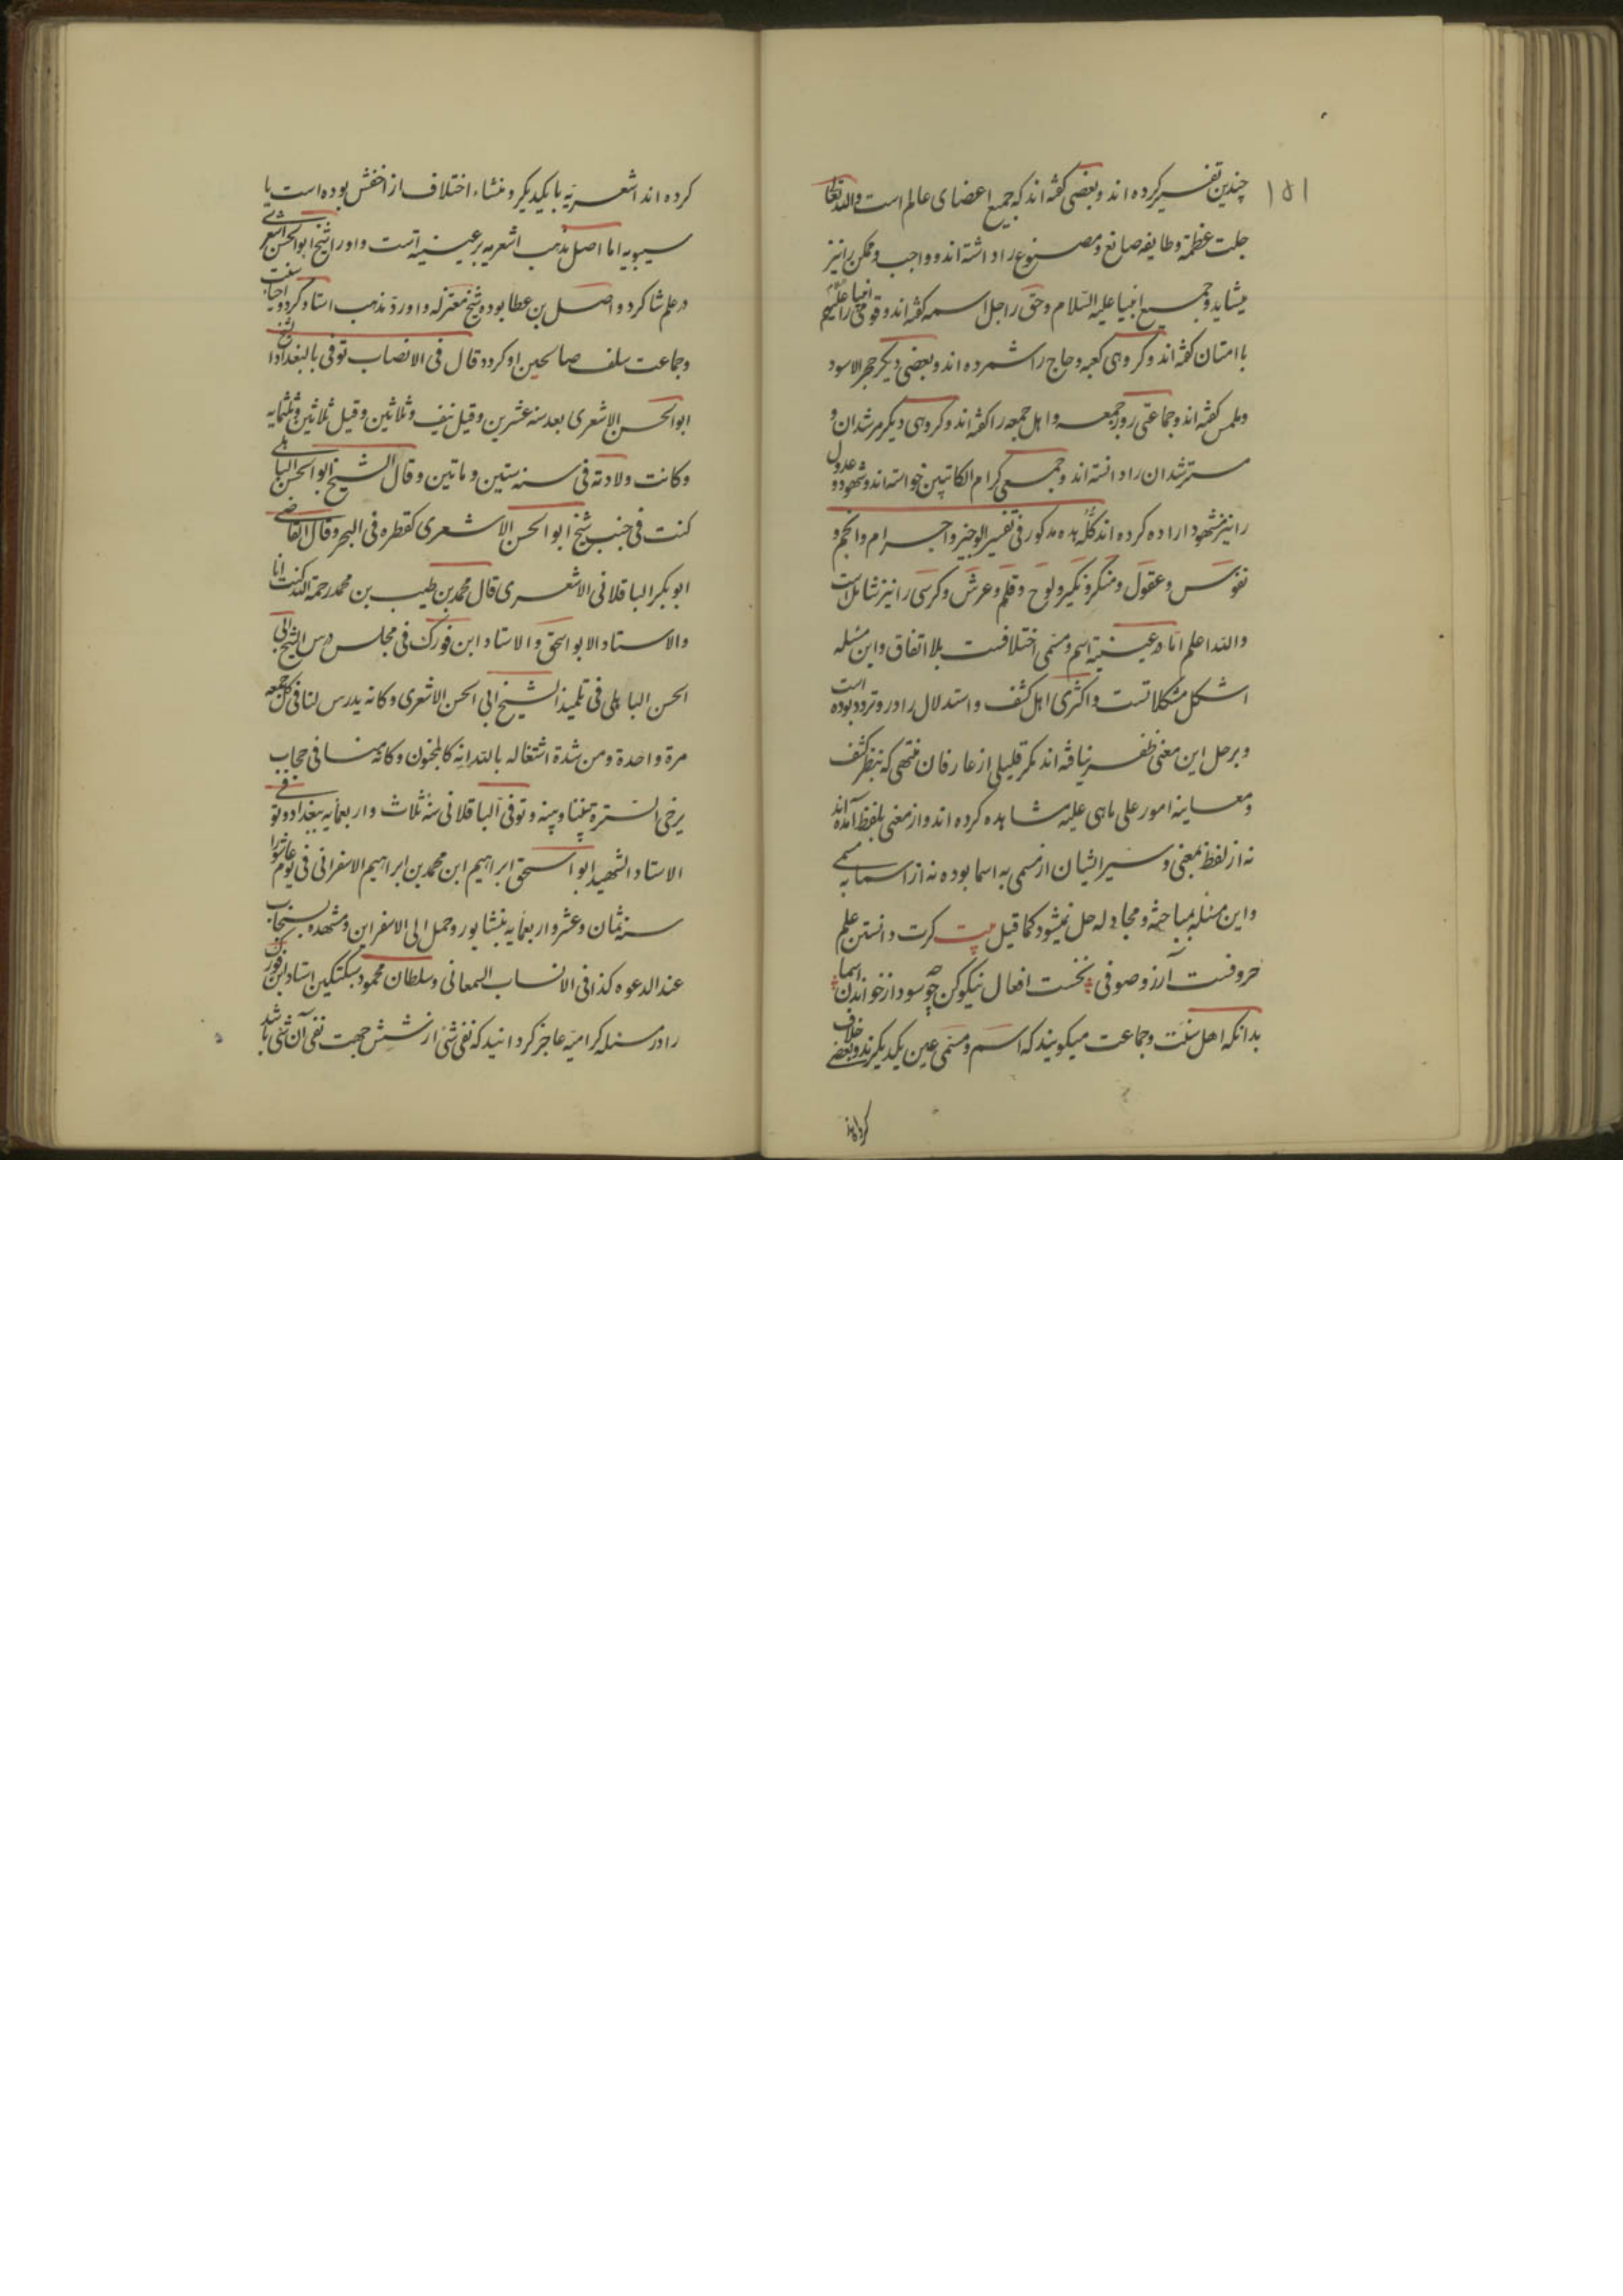 ۱۵۱
چندین تفسیر کرده اند و بعضی گفته اند که جمیع اعضای عالم است والله تعالی
جلت عظمة وطایفه صانع و مصنوع را داشته اند و واجب و ممکن را نیز
میشاید و جمیع انبیا علیه السلام و حق را جل اسمه گفته اند و قومی انبیا را علیهم
با امتان گفته اند و گروهی کعبه و حاج را شمرده اند و بعضی دیگر حجر الاسود
و ملمس گفته اند و جماعتی روز جمعه و اهل جمعه را گفته اند و گروهی دیگر مرشدان و
مسترشدان را دانسته اند و جمعی کرام الکاتبین خواسته اند و شهود و عدول
را نیز شهود اراده کرده اند کله بده مذکور فی تفسیر الوجیز و اجرام و انجم و
نفوس و عقول و منکر و نکیر و لوح و قلم و عرش و کرسی را نیز شاملست
والله اعلم اما در عینیة اسم و مسمی اختلافست بلا اتفاق و این مسئله
اشکل مشکلاتست و اکثری اهل کشف و استدلال را در و تردد بوده است
و بر حل این معنی ظفر نیافته اند مگر قلیلی از عارفان منتهی که بنظر کشف
و معاینه امور علی ماهی علیه مشاهده کرده اند و از معنی بلفظ آمده اند
نه از لفظ بمعنی و سیر ایشان از مسمی به اسما بوده نه از اسما به مسمی
و این مسئله بمباحثه و مجادله حل نمیشود کما قیل بیت گرت دانستن علم
حروفست آرزو صوفی نخست افعال نیکو کن چه سود از خواندن اسما
بدانکه اهل سنت و جماعت میگویند که اسم و مسمی عین یکدیگرند و بعضی خلاف
کرده اند
کرده اند اشعریه با یکدیگر و منشاء اختلاف از اخفش بوده است یا
سیبویه اما اصل مذهب اشعریه بر عینیة است و او را شیخ ابو الحسن اشعری
در علم شاگرد واصل بن عطا بوده شیخ معتزله و او رد مذهب استاد کرد و احیاء سنت
و جماعت سلف صالحین او کرد و قال فی الانصاب توفی بالبغداد الشیخ
ابو الحسن الاشعری بعد سنه عشرین و قیل نیف و ثلاثین و قیل ثلاثین و ثلثمایه
و کانت ولادته فی سنه ستین و ماتین و قال الشیخ ابو الحسن الباهلی
کنت فی جنب شیخ ابو الحسن الاشعری کقطره فی البحر و قال القاضی
ابو بکر الباقلانی الاشعری قال محمد بن طیب بن محمد رحمة الله کنت انا
والاستاد الابو اسحق والاستاد ابن فورک فی مجلس درس الشیخ ابی
الحسن الباهلی فی تلمیذ الشیخ ابی الحسن الاشعری و کانه یدرس لنا فی کل جمعه
مرة واحدة و من شدة اشتغاله بالله انه کالمجنون و کانه منا فی حجاب
یرخی الستره بیننا و بینه و توفی الباقلانی سنه ثلاث و اربعمایه ببغداد و توفی
الاستاد الشهید ابو اسحق ابراهیم ابن محمد بن ابراهیم الاسفرانی فی یوم عاشورا
سنه ثمان و عشر و اربعمایه بنشابور و حمل الی الاسفراین و مشهده یستجاب
عند الدعوه کذا فی الانساب السمعانی و سلطان محمود سبکتکین استاد ابن فورک
را در مسئله کرامیه عاجز گردانید که نفی شی از شش جهت نفی آن شی باشد